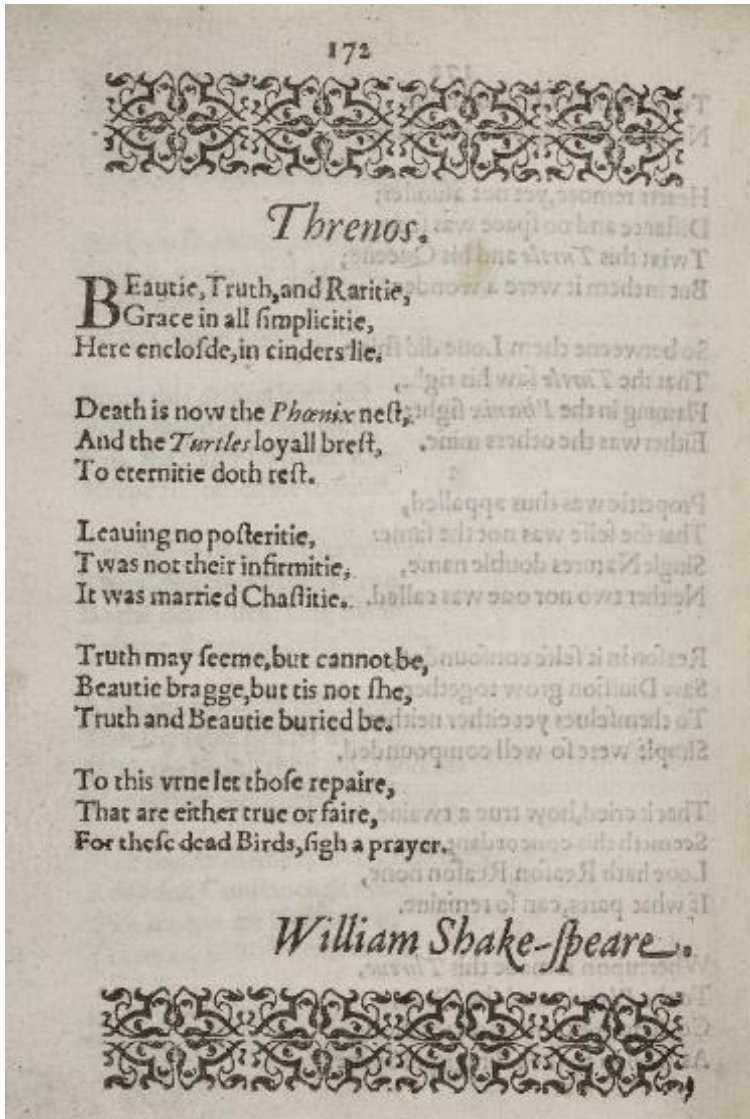 172
Threnos.
BEautie, Truth, and Raritie,
Grace in all ſimplicitie,
Here encloſde, in cinders lie.
Death is now the Phœnix neſt,
And the Turtles loyall breſt,
To eternitie doth reſt.
Leauing no poſteritie,
Twas not their infirmitie,
It was married Chaſtitie.
Truth may ſeeme, but cannot be,
Beautie bragge, but tis not ſhe,
Truth and Beautie buried be.
To this vrne let thoſe repaire,
That are either true or faire,
For theſe dead Birds, ſigh a prayer.
William Shake-ſpeare.